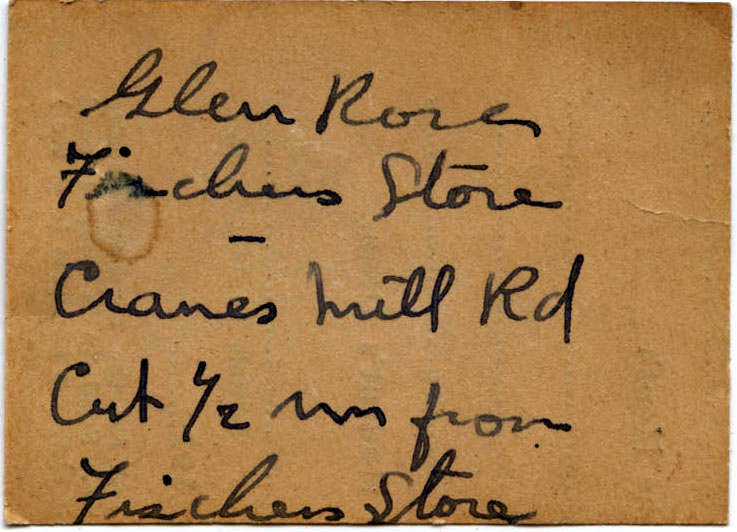 Glen Rose
Fischers Store
–
Cranes Mill Rd
Cut 1/2 mi from
Fischers Store